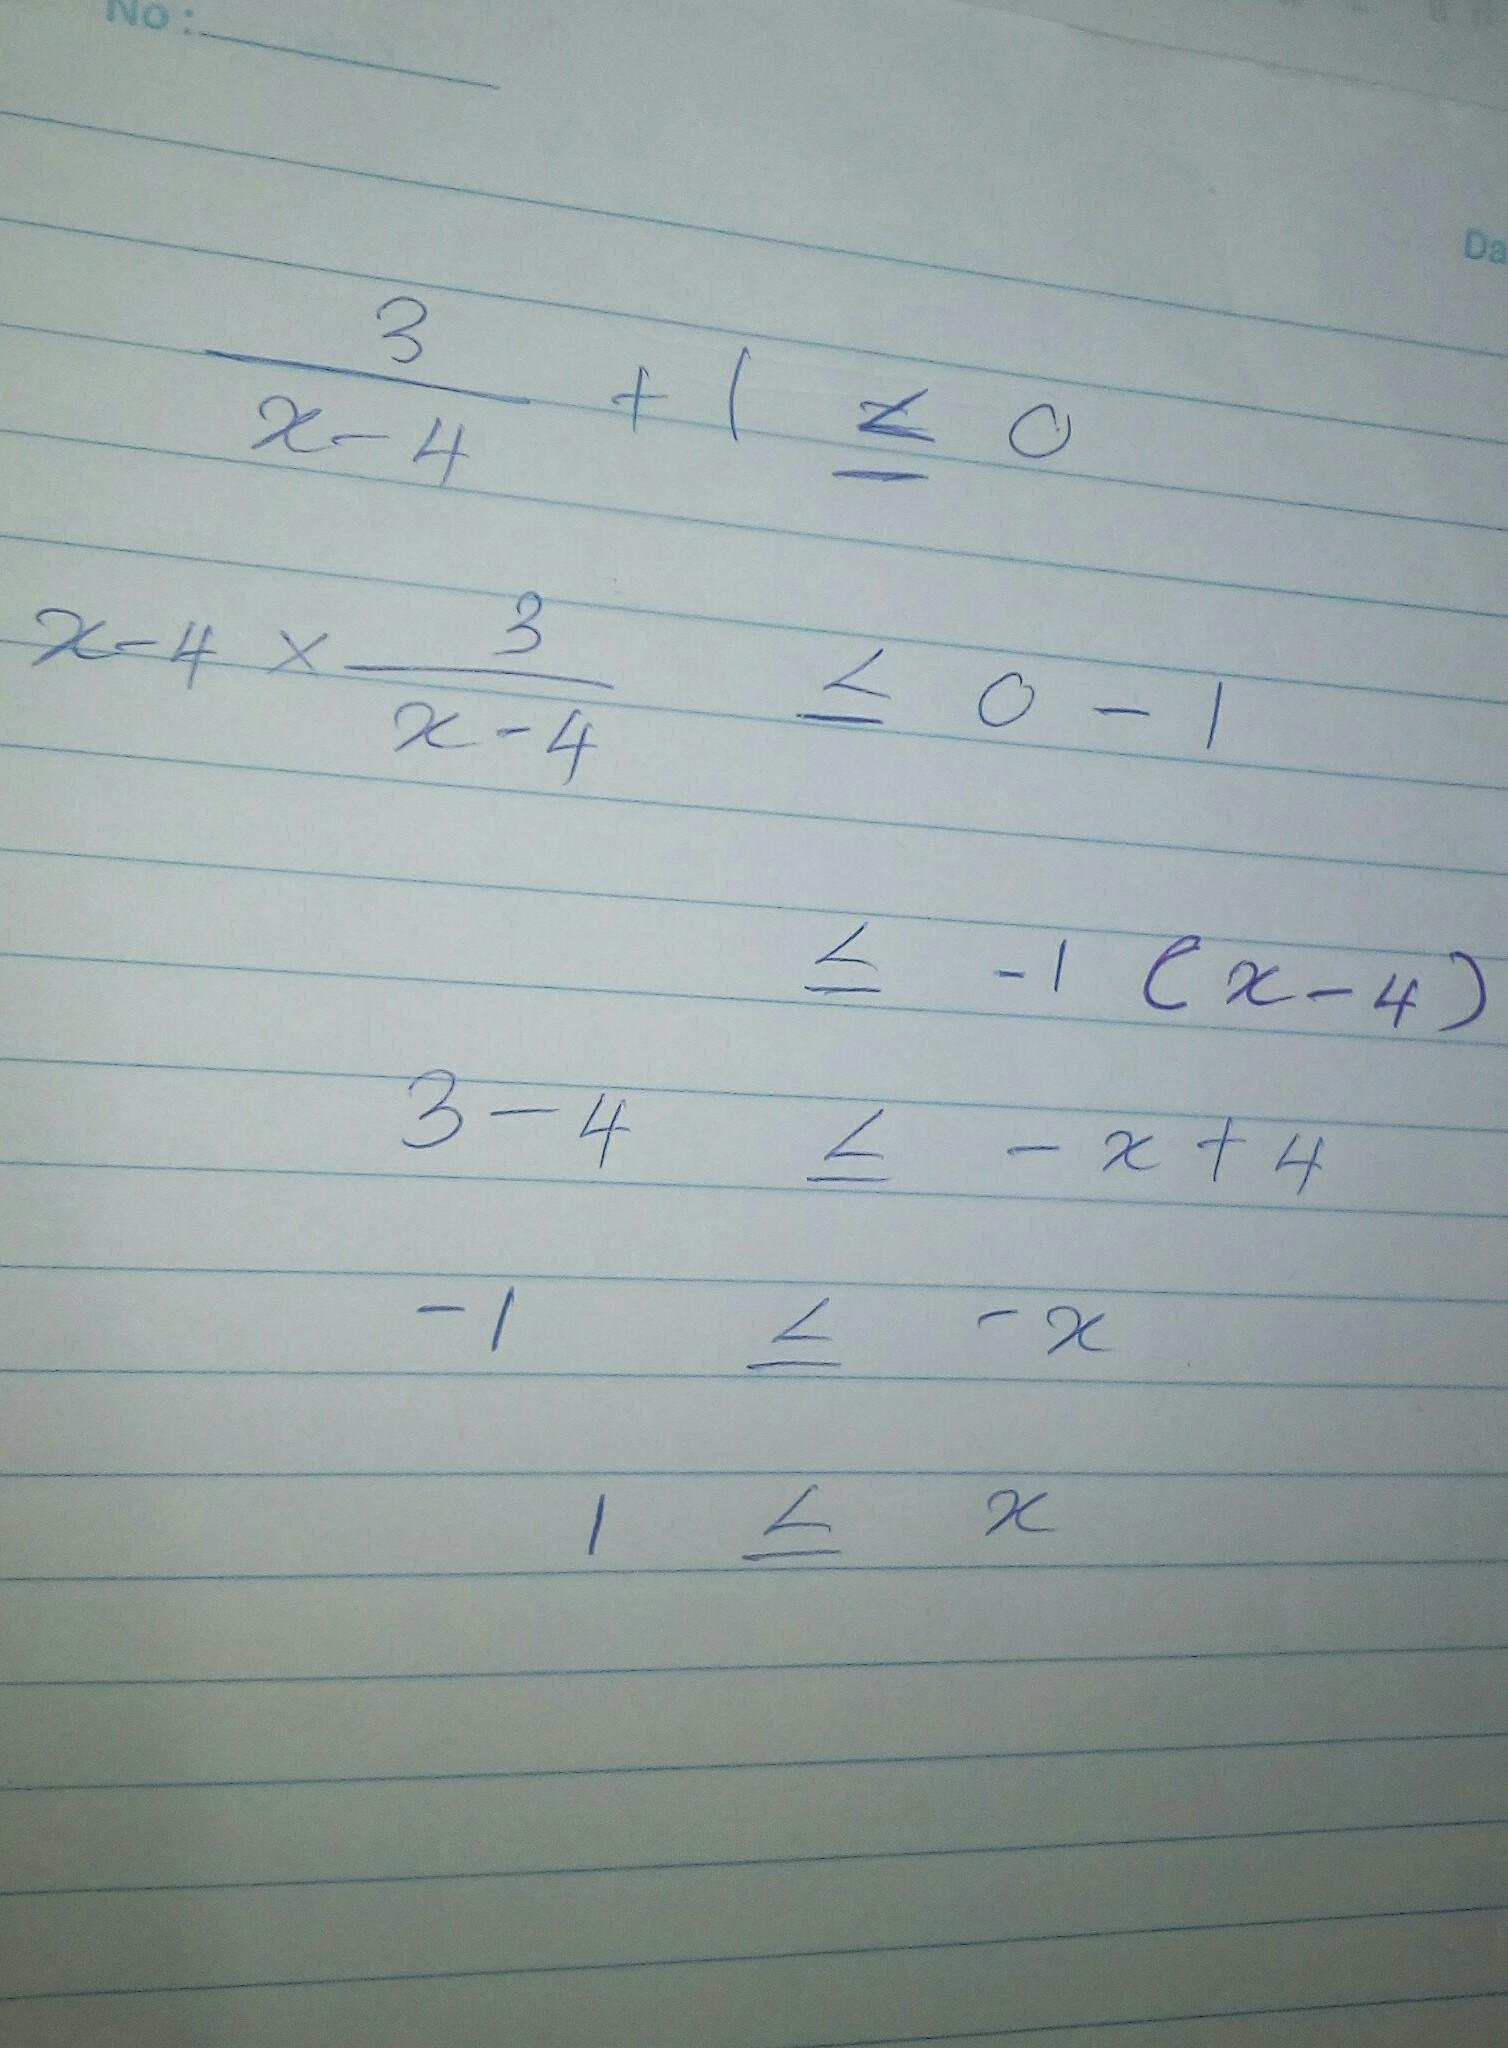 No:
Da
3/(x-4) + 1 ≤ 0
x-4 × 3/(x-4) ≤ 0 - 1
≤ -1 (x-4)
3-4 ≤ -x+4
-1 ≤ -x
1 ≤ x